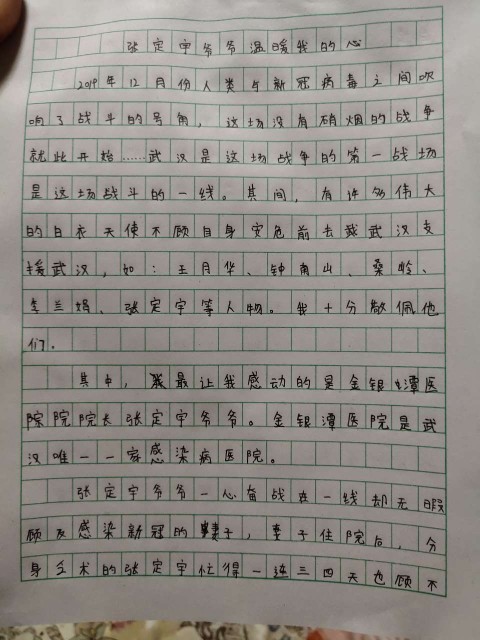 张定宇爷爷温暖我的心
2019年12月份人类与新冠病毒之间吹
响了战斗的号角，这场没有硝烟的战争
就此开始……武汉是这场战争的第一战场
是这场战斗的一线。其间，有许多伟大
的白衣天使不顾自身安危前去武汉支
援武汉，如：王月华、钟南山、桑岭、
李兰娟、张定宇等人物。我十分敬佩他
们．
其中，最让我感动的是金银潭医
院院长张定宇爷爷。金银潭医院是武
汉唯一一家感染病医院。
张定宇爷爷一心奋战在一线却无暇
顾及感染新冠的妻子，妻子住院后，分
身乏术的张定宇忙得一连三四天也顾不